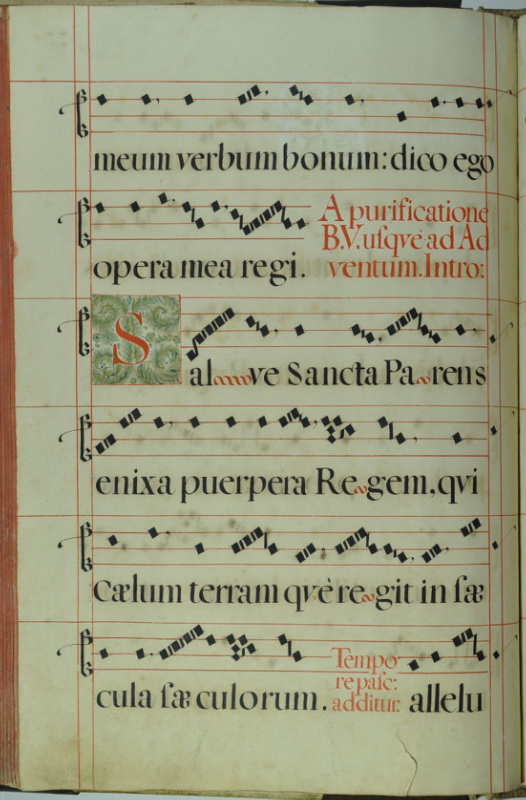 meum verbum bonum: dico ego
opera mea regi.
A purificatione
B.V. uſqvè ad Ad
ventum. Intro:
Salve Sancta Parens
enixa puerpera Regem, qvi
Cælum terram qvè regit in ſæ
cula ſæculorum.
Tempo
re paſc:
additur.
allelu